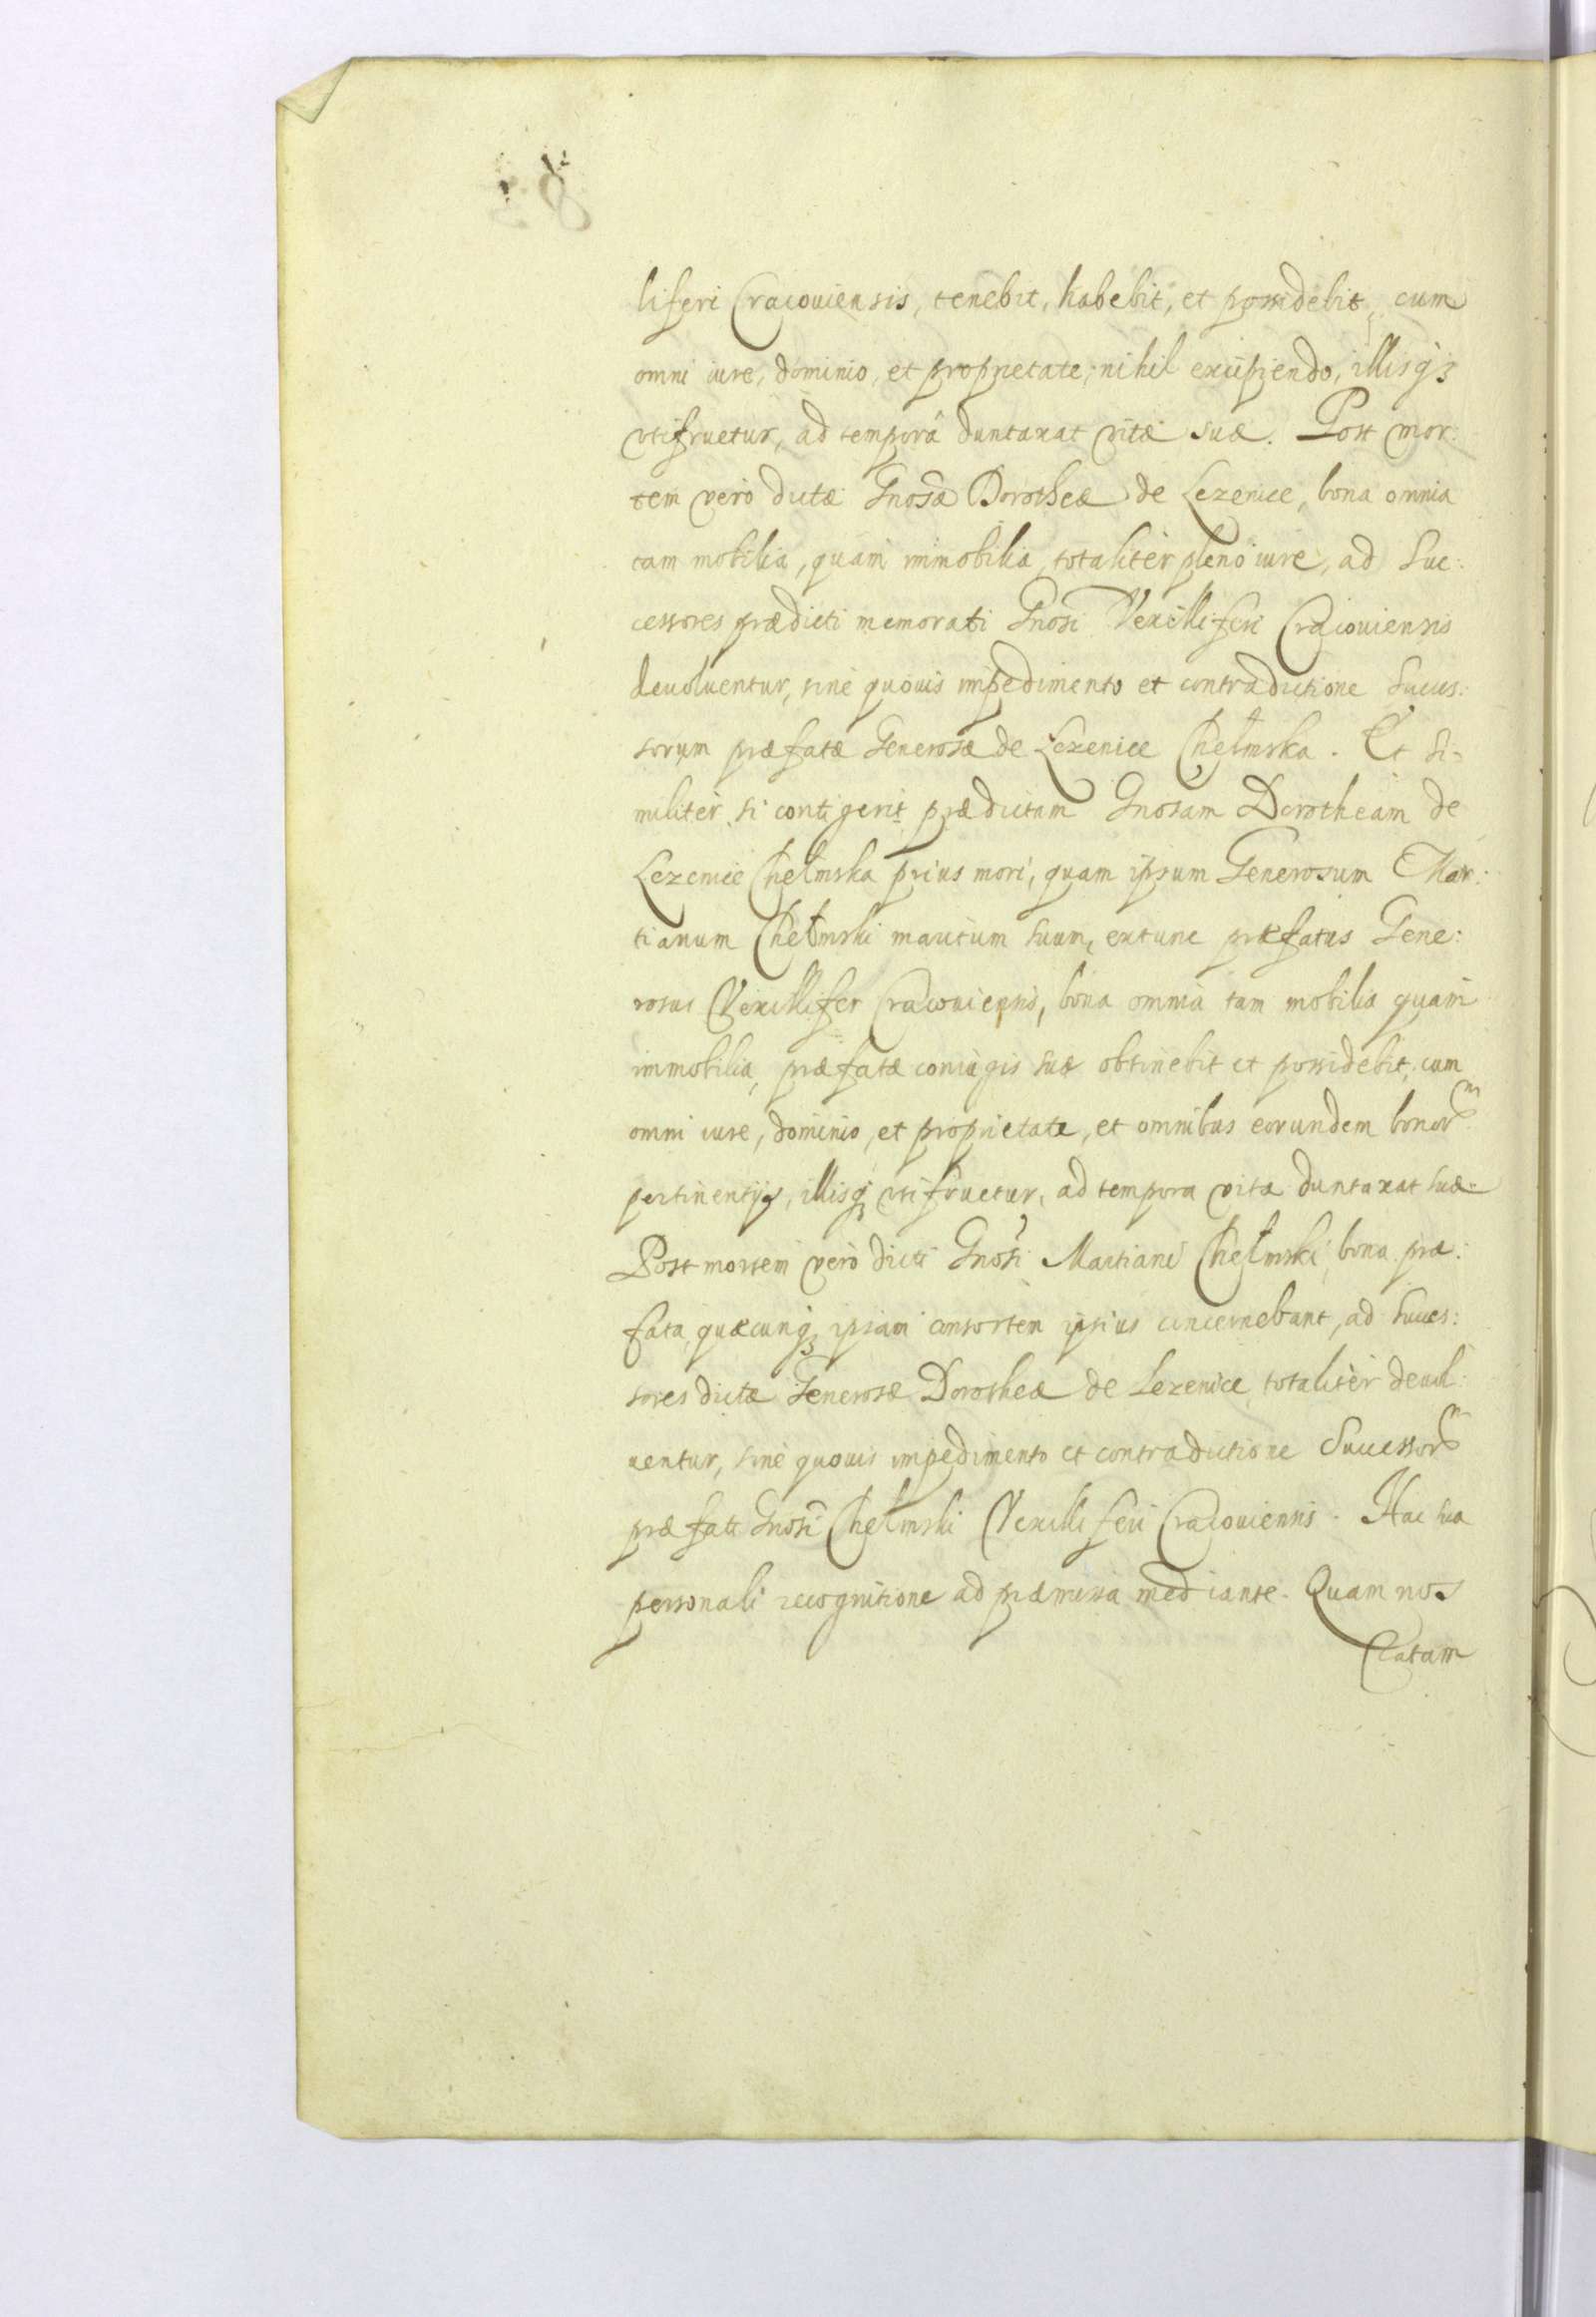 liferi Cracouiensis, tenebit, habebit, et possidebit, cum
omni iure, dominio, et proprietate, nihil excipiendo, illisq3
vtifruetur, ad temporâ duntaxat vitæ suæ. Post mor:
tem verò dictæ Gnosæ Dorotheæ de Lezenice, bona omnia
tam mobilia, quam immobilia, totalitèr pleno iure, ad Suc:
cessores prædicti memorati Gnosi Vexilliferi Cracouiensis
deuoluentur, sinè quouis impedimento et contradictione Succes:
sorum præfatæ Generosæ de Lezenice Chełmska. Et si:
militèr si contigerit prædictam Gnosam Dorotheam de
Lezenice Chełmska prius mori, quam ipsum Generosum Mar:
tianum Chełmski maritum suum, extunc præfatus Gene:
rosus Vexillifer Cracouiensis, bona omnia tam mobilia quam
immobilia, præfatæ coniugis suæ obtinebit et possidebit, cum
omni iure, dominio, et proprietate, et omnibus eorundem bonorm
pertinentijs, illisq3 vtifruetur, ad tempora vitæ duntaxat suæ.
Post mortem verò dicti Gnosi Martiani Chełmski, bona præ:
fata, quæcunq3 ipsam consortem ipsius concernebant, ad Succes:
sores dictæ Generosæ Dorotheæ de Lezenice totalitèr deuol:
uentur, sinè quouis impedimento et contradictione Successorm
præfati Gnosi Chełmski Vexilliferi Cracouiensis. Hac sua
personali recognitione ad præmissa mediante. Quam nos